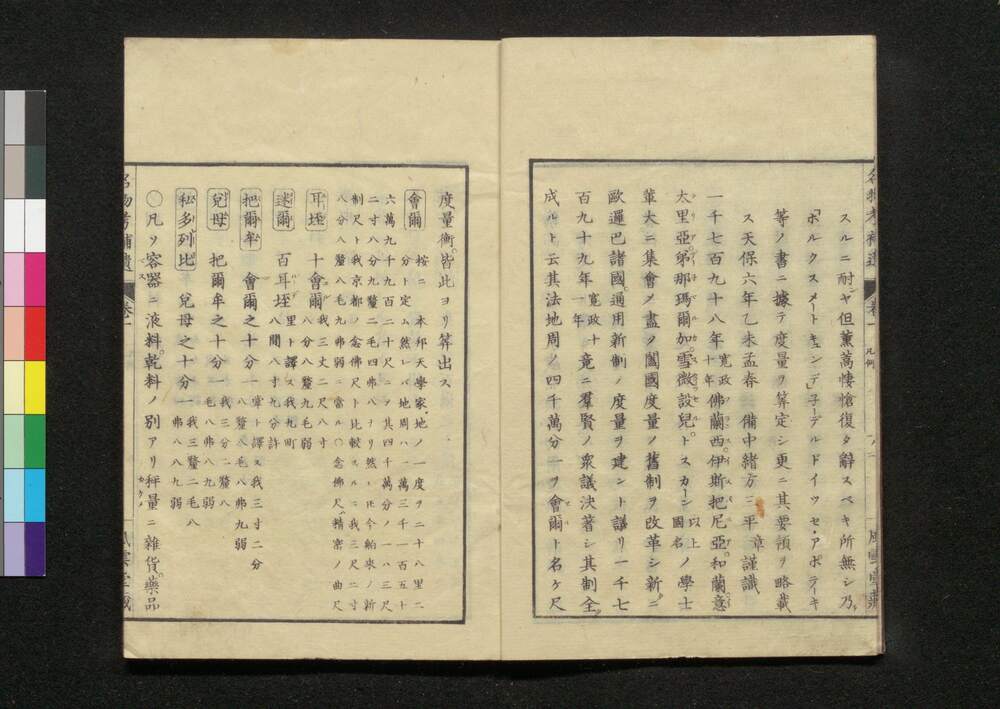 スルニ耐ンヤ但薫蒿悽愴復タ辭スベキ所無シ乃
「ボルクスメートキュンデ」子ーデルドイツセ・アポテーキ
等ノ書ニ據テ度量ヲ算定シ更ニ其要領ヲ略載
ス天保六年乙未孟春 備中緒方三平章謹識
一千七百九十八年寛政ノ十年佛蘭西伊斯把尼亞和蘭意
太里亞弟那瑪爾加雪微設兒ト スカーン 以上國名ノ學士
輩大ニ集會メ盡ク闔國度量ノ舊制ヲ改革シ新ニ
歐邏巴諸國通用新制ノ度量ヲ建ント議リ一千七
百九十九年寛政十一年竟ニ羣賢ノ衆議決著シ其制全
成ルト云其法地周ノ四千萬分一ヲ會爾ト名ケ尺
度量衡皆此ヨリ算出ス
會爾 按ニ 本邦天學家地ノ一度ヲ二十八里二
分ト定ム然レバ地周ハ一萬三千一百五十
六萬九千九百二十尺ニメ其四千萬分ノ一ハ三尺
二寸八分九釐二毛四弗ナリ然レ𪜈今舶來ノ新
制尺ト我京都ノ念佛尺ト比較スルニ我三尺二寸
八分八釐八毛九弗弱ニ當ル○念佛尺ハ精密ノ曲尺
耳坯 十會爾 我三丈二尺八寸八分八釐九毛弱
迷爾 百耳坯 里ト譯ス我九町八間八寸九分許
把爾牟 會爾之十分一 寧ト譯ス我三寸二分八釐八毛八弗九弱
兒母 把爾牟之十分一 我三分二釐八毛八弗八九弱
私多列比 兒母之十分一 我三釐二毛八弗八八九弱
○凡ソ容器ニ液料乾料ノ別アリ秤量ニ雜貨藥品
名物考補遺 卷一 凡例
風雲堂藏
名物考補遺 卷一
風雲堂藏